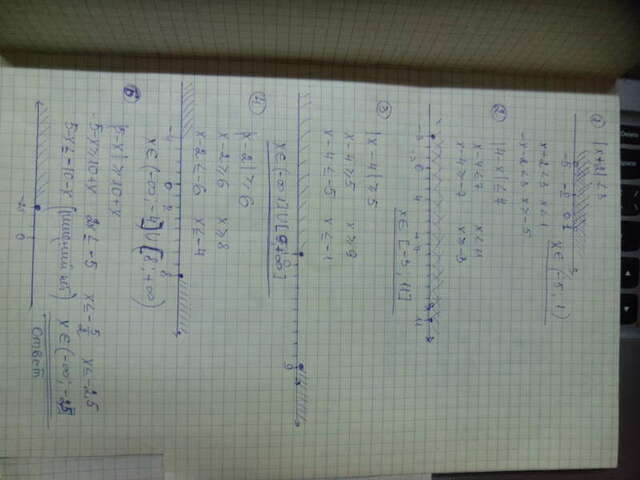 ① |x+2|<3
-5 -2 0 1
x+2<3 x<1 x∈(-5; 1)
-x-2<3 x>-5
② |4-x|≤7
x-4≤7 x≤11
x-4≥-7 x≥-3
-3 0 4 11
x∈[-3; 11]
③
|x-4|≥5
x-4≥5 x≥9
x-4≤-5 x≤-1
9
x∈(-∞ 1]∪[9;+∞]
④
|x-2|≥6
x-2≥6 x≥8
x-2≤-6 x≤-4
-4 0 2 8
x∈(-∞;-4]∪[8;+∞)
⑤
|5-x|≥10+x
5-x≥10+x 2x≤-5 x≤-5/2 x≤-2,5
5-x≤-10-x (решений нет) x∈(-∞;-2,5]
Ответ
0